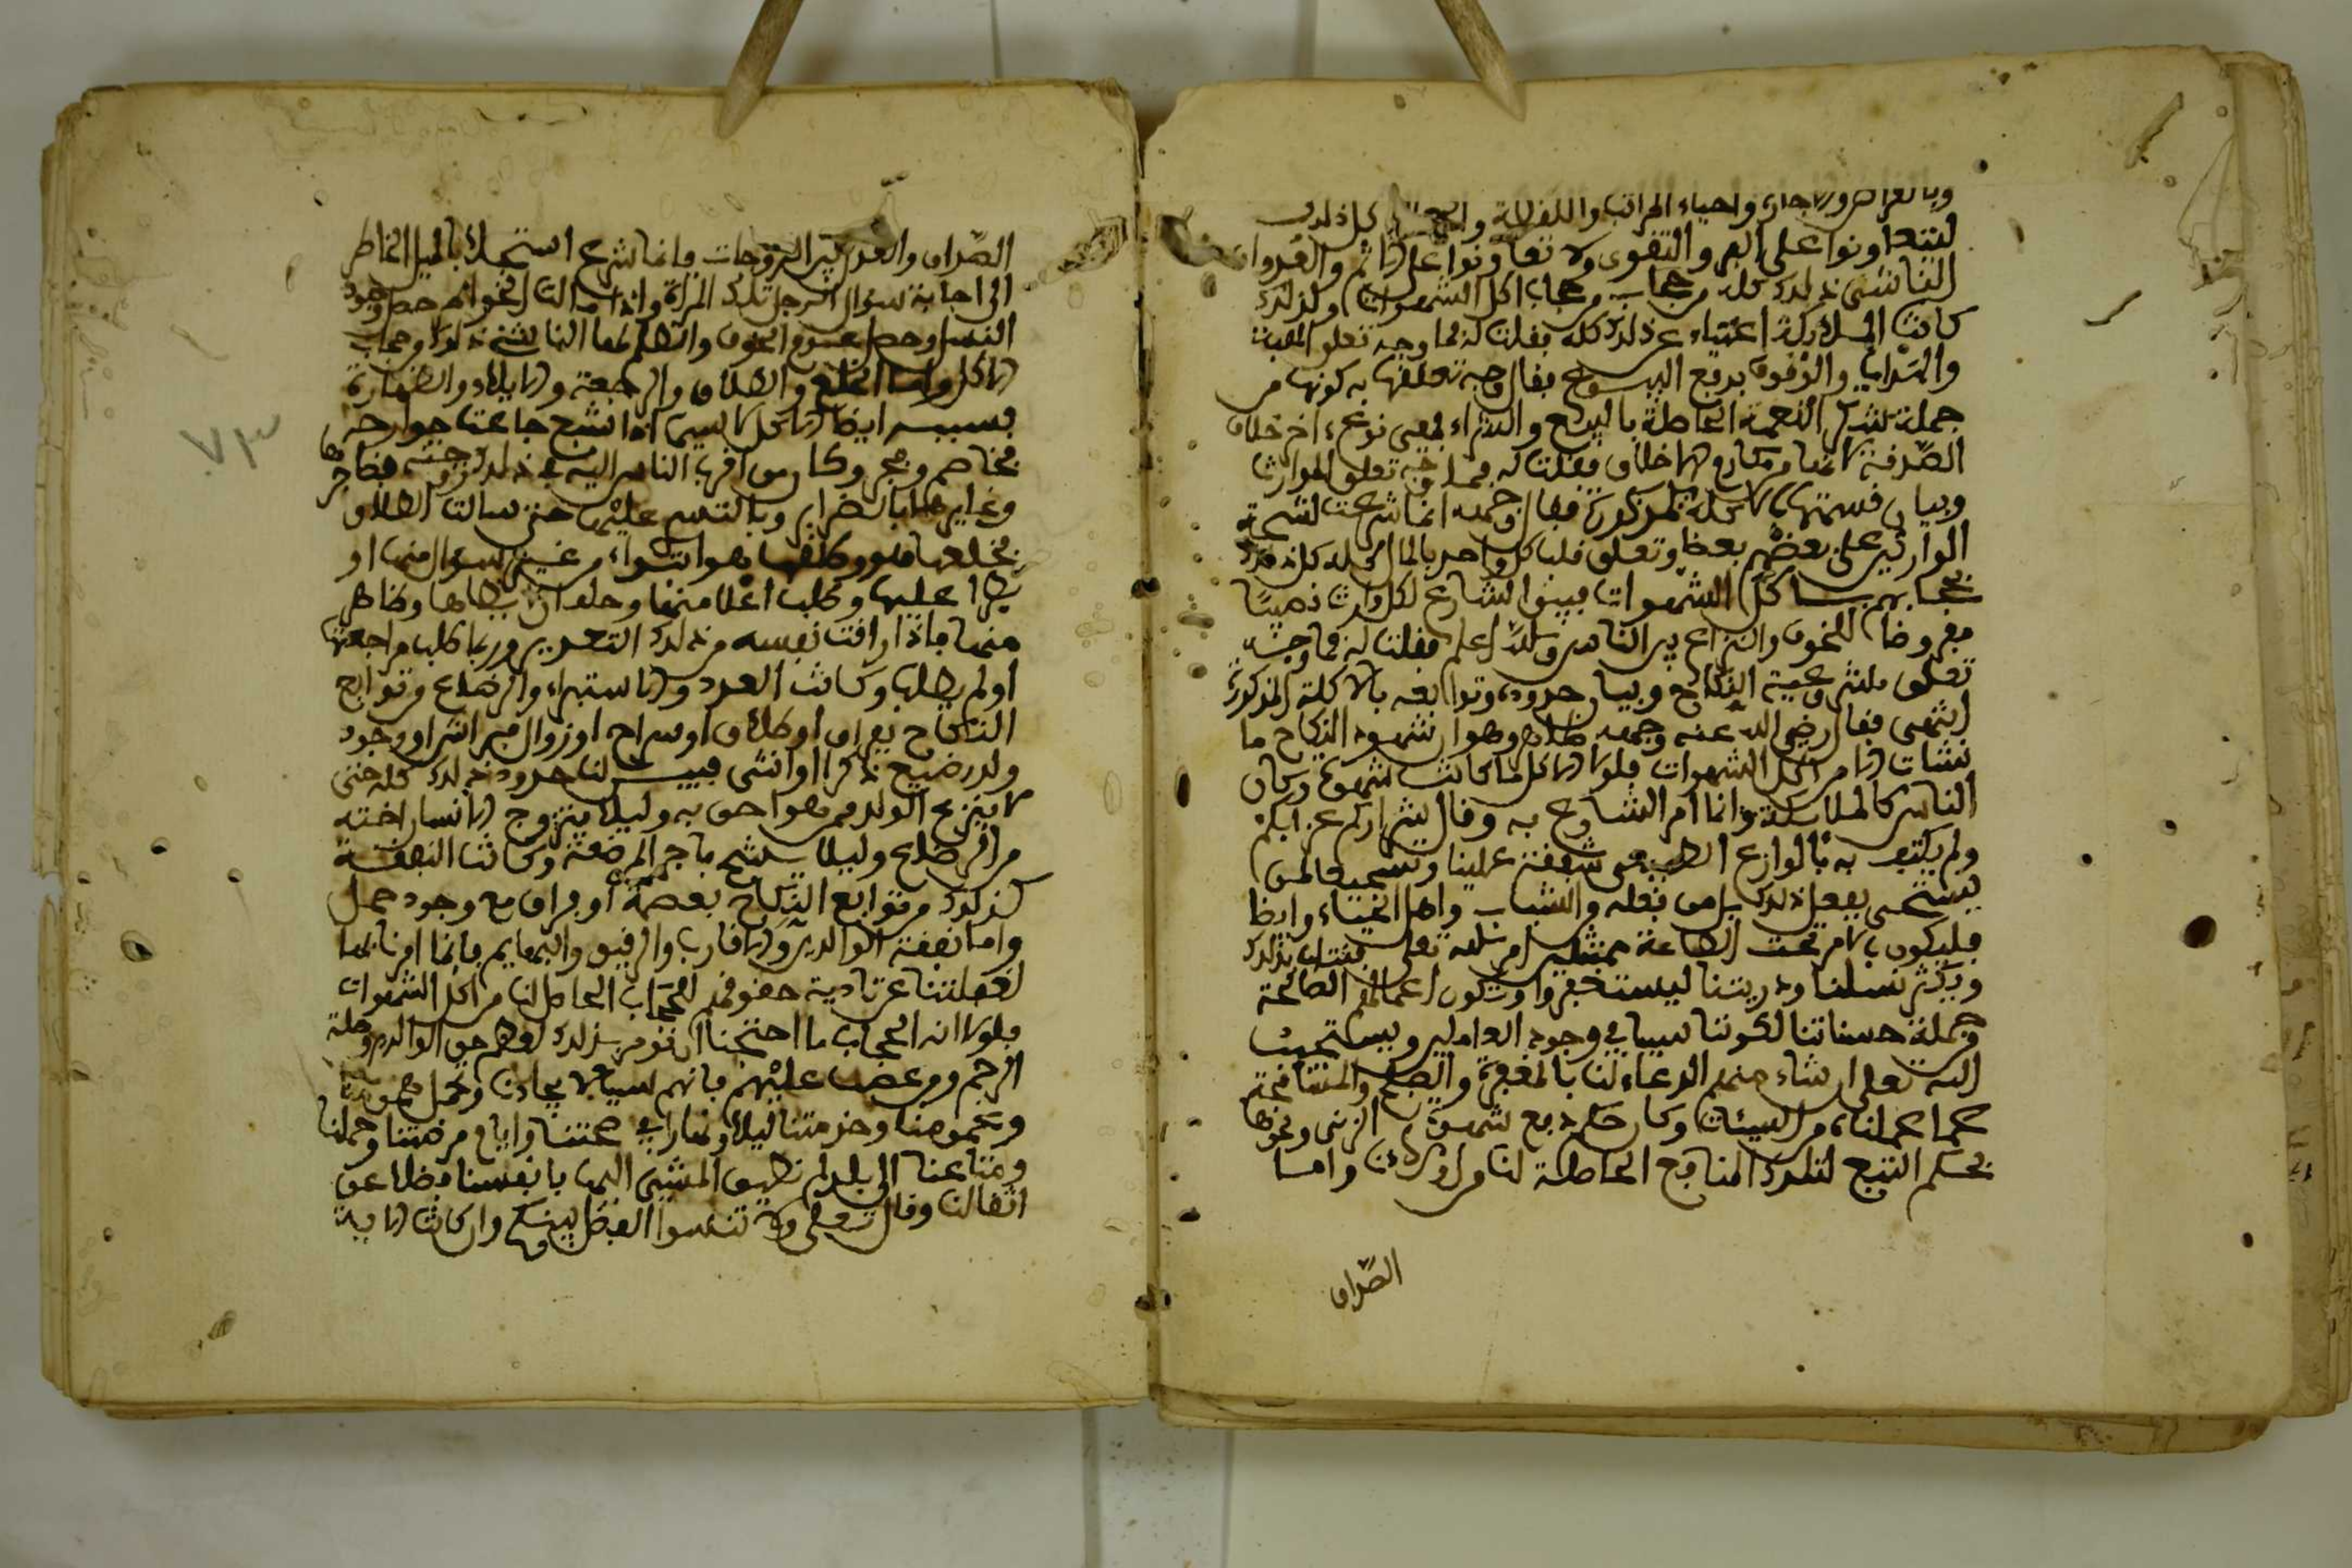 وبالقراض والاجارة واحياء الموات واللقطة كل ذلك
ليتعاونوا على البر والتقوى ولا تعاونوا على الاثم والعدوان
الناشئ ذلك كله من حجاب اكل الشهوات ولذلك
كانت الملائكة اغنياء عن ذلك كله فقلت له فما وجه تعلق الهبة
والهدايا بربع البيوع فقال وجه تعلقها به كونها من
جملة شكر النعمة الحاصلة بالبيع والشراء فهي نوع اخر خلاف
الصدقة لانها من مكارم الاخلاق فقلت له فما وجه تعلق المواريث
وبيان قسمتها بالاكلة المذكورة فقال وجهه انما شرعت لشحة
الوارثين على بعضهم بعضا وتعلق قلب كل واحد بالمال كله كل ذلك
بحجابهم باكل الشهوات فبين الشارع لكل وارث نصيبا
مفروضا للخوف والنزاع بين الناس والله اعلم فقلت له فما وجه
تعلق مشروعية النكاح وبيان حدوده وتوابعه بالاكلة المذكورة
انتهى فقال رضي الله عنه وجهه ظاهر وهو ان شهوة النكاح ما
نشات الا من اكل الشهوات فلولا الاكل ما كانت شهوة وكان
الناس كالملائكة وانما امر الشارع به وقال شراركم عزابكم
ولم يكتف به بالوازع الطبيعي شفقة علينا
يستحي بفعل ذلك من فعله والشباب واهل الحياء وايضا
فليكون بالامر تحت الطاعة ممتثلين امر الله تعالى فنثاب بذلك
ويكثر نسلنا وذريتنا ليستغفروا وتكون اعمالهم الصالحة
وجملة حسناتنا لكوننا سببا في وجود العاملين ويستجيب
الله تعالى ان شاء منهم الدعاء لنا بالمغفرة والصفح والمسامحة
عما عملناه من السيئات وكان دفع شهوة الزنى ونحوها
بحكم التبع لتلك المنافع الحاصلة لنا من الاولاد واما
الصداق
الصداق والعدل بين الزوجات فانما شرع استجلابا لميل الخاطر
الى اجابة سؤال الرجل تلك المراة
الناشئ ذلك وحجاب
الاكل واما الخلع والطلاق والرجعة والايلاء والظهار
بسببه ايضا الاكل لاسيما اذا شبع جاعت جوارحه
فخاصم وفجر وكان من اقرب الناس اليه في ذلك زوجته فضاجرها
وغايرها بالضراير وبالتسري عليها حتى سالت الطلاق
فخلعها منه وطلقها هو ابتداء من غير سؤال منها او
ظهار عليها وحلف ان لا يطاها وظاهر
منها فاذا راقت نفسه من ذلك التعزير وربما طلب مراجعتها
او لم يطلبها وكانت العدد والاستبراء والرضاع من توابع
النكاح بفراق او طلاق او سراح او زوال ووجود
ولد رضيع ذكرا او انثى فبين لنا حدود ذلك كله حتى
لا ينزع الولد ممن هو احق به وليلا يتزوج الانسان اخته
من الرضاع وليلا يشح باجر المرضعة وكانت النفقة
كذلك من توابع النكاح بعصمة او فراق مع وجود حمل
واما نفقة الوالدين والاقارب والرقيق والبهايم فانما امرنا بها
لغفلتنا عن تادية حقوقهم للحجاب الحاصل لنا من اكل الشهوات
فلولا ان الحجاب ما احتجنا ان نومر بذلك لعظم حق الوالدين وصلة
الرحم ومن عطف عليهم فانهم سببا لايجادنا وتحمل همومنا
وغمومنا وخدمتنا ليلا ونهارا في صحتنا وايام مرضنا وحملنا
ومتاعنا الى بلد لم نطق المشي اليها بانفسنا فضلا عن
اثقالنا وقال تعالى ولا تنسوا الفضل بينكم وان كانت الاية
٧٣